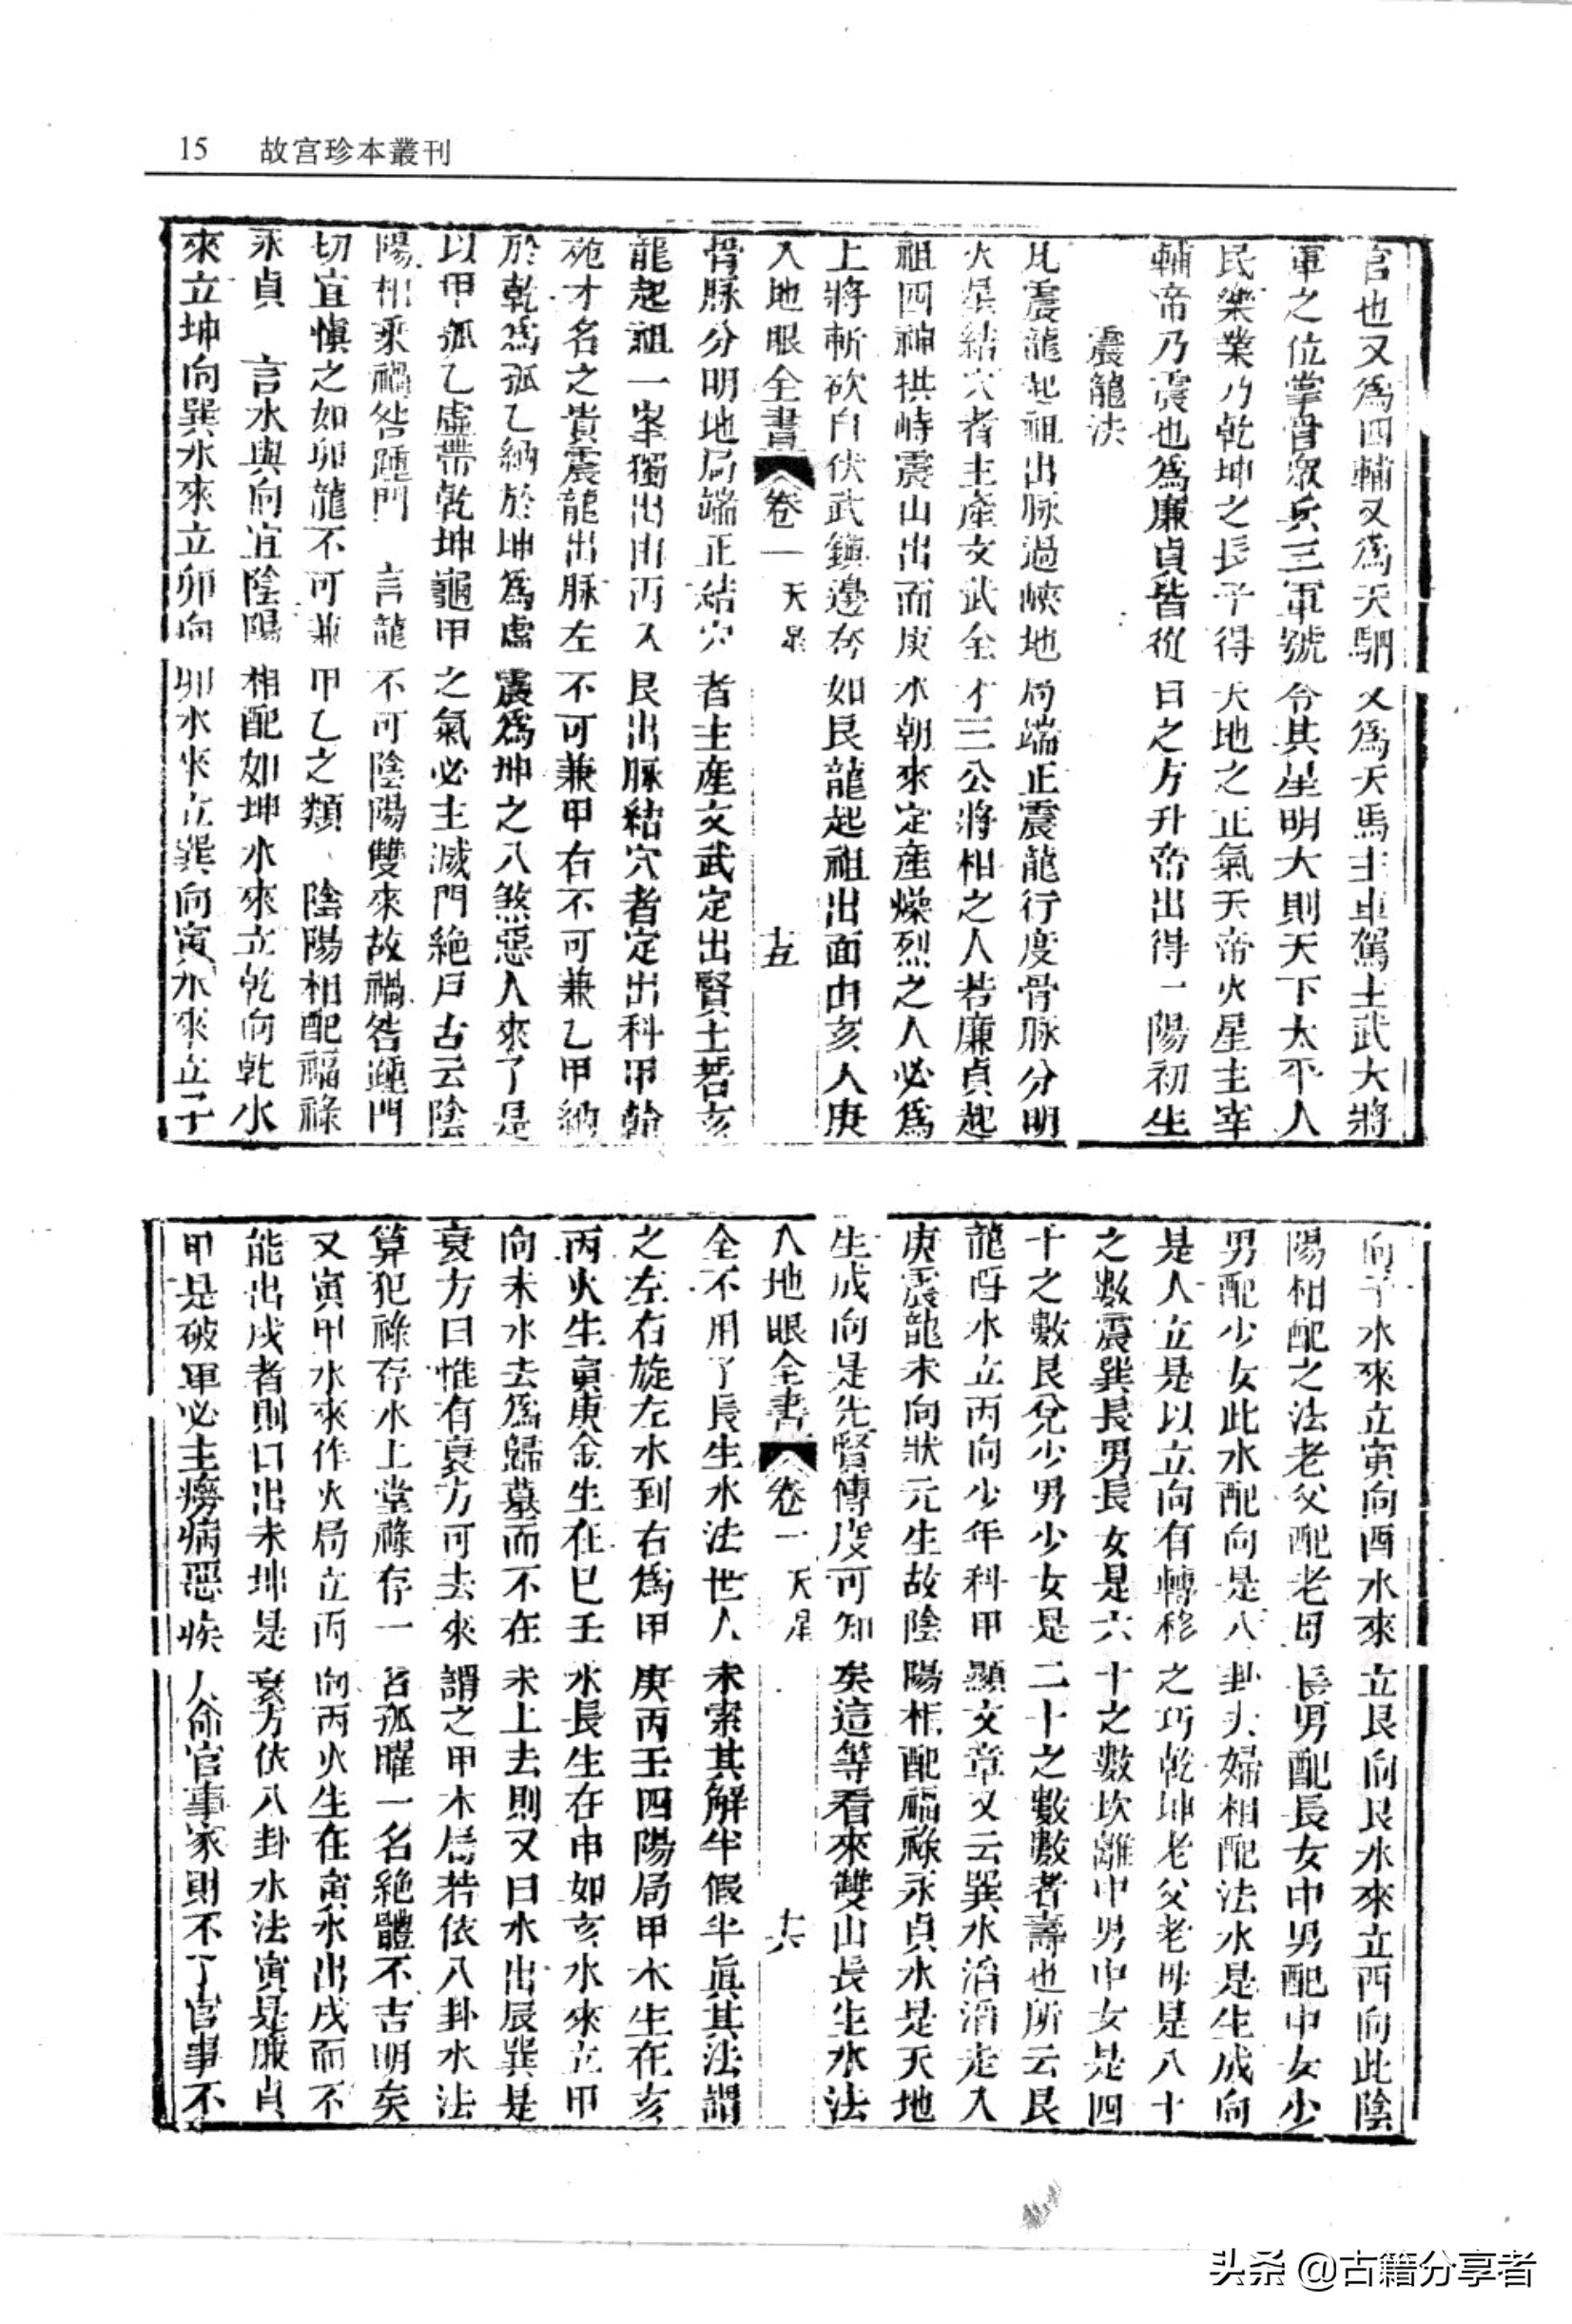 15 故宫珍本叢刊
官也又爲四輔又爲天駟又爲天馬主車駕主武大將
軍之位掌管眾兵三軍號令其星明大則天下太平人
民樂業乃乾坤之長子得天地之正氣天帝火星主宰
輔帝乃震也爲廉貞皆從日之方升帝出得一陽初生
震龍法
凡震龍起祖出脉過峽地局端正震龍行度骨脉分明
火星結穴者主產文武全才三公將相之人若廉貞起
祖四神拱峙震山出而庚水朝來定產燥烈之人必爲
上將斬砍自伏武鎮邊夸如艮龍起祖出面由亥入庚
人地眼全書 卷一 天星 十五
骨脉分明地局端正結穴者主產文武定出賢士若亥
龍起祖一峯獨出由丙入艮出脉結穴者定出科甲翰
苑才名之貴震龍出脉左不可兼甲右不可兼乙甲納
於乾爲孤乙納於坤爲虛震爲坤之八煞惡人來了是
以甲孤乙虛帶乾坤龜甲之氣必主滅門絕戶古云陰
陽相乘禍咎踵門 言龍不可陰陽雙來故禍咎踵門
切宜慎之如卯龍不可兼甲乙之類 陰陽相配福祿
永貞 言水與向宜陰陽相配如坤水來立乾向乾水
來立坤向巽水來立卯向卯水來立巽向寅水來立子
向子水來立寅向酉水來立艮向艮水來立酉向此陰
陽相配之法老父配老母長男配長女中男配中女少
男配少女此水配向是八卦夫婦相配法水是生成向
是人立是以立向有轉移之巧乾坤老父老母是八十
之數震巽長男長女是六十之數坎離中男中女是四
十之數艮兌少男少女是二十之數數者壽也所云艮
龍酉水立丙向少年科甲顯文章又云巽水滔滔走入
庚震龍未向狀元生故陰陽相配福祿永貞水是天地
生成向是先賢傳度可知矣這等看來雙山長生水法
人地眼全書 卷一 天星 十六
全不用了長生水法世人未索其解半假半眞其法謂
之左右旋左水到右爲甲庚丙壬四陽局甲木生在亥
丙火生寅庚金生在巳壬水長生在申如亥水來立甲
向未水去爲歸墓而不在未上去則又曰水出辰巽是
衰方曰惟有衰方可去來謂之甲木局若依八卦水法
算犯祿存水上堂祿存一名孤曜一名絕體不吉明矣
又寅甲水來作火局立丙向丙火生在寅水出戌而不
能出戌者則曰出未坤是衰方依八卦水法寅是廉貞
甲是破軍必主癆病惡疾人命官事家則不了官事不
头条 @古籍分享者